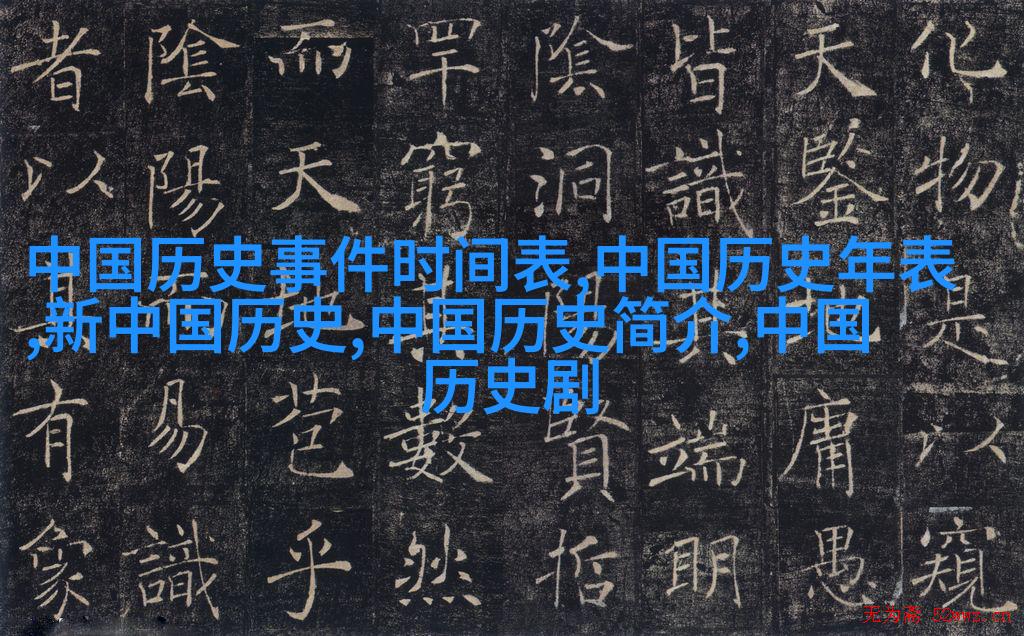 中国历史事件时间表,中国历史年表
,新中国历史,中国历史简介,中国
历史剧
化物是以窺
天鑒地庸愚
皆識其端明
陰洞陽賢哲
罕窮其數然
而天地苞乎
陰陽易識
者以有象
无为斋 52wwz.cn